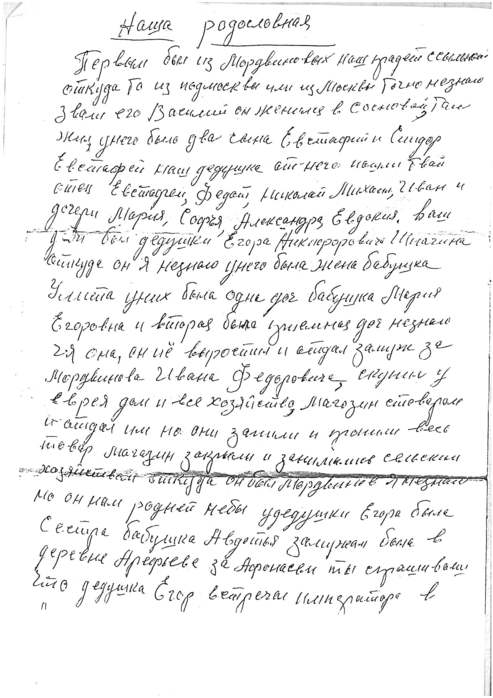 Наша родословная
Первым был из Мордвиновых наш прадед ссыльной
откуда то из подмосквы или из Москвы точно незнаю
Звали его Василий он женился в Сосновой, Там
жил, унего было два сына Евстафий и Сидор
Евстафей наш дедушка от него пошли Твай
отец Евстафей, Федот, Николай Михаил, Иван и
дочери Мария, Софья, Александра, Евдокия. ваш
был дедушки Егора Никифоровича Шпагина
откуда он я незнаю унего была жена бабушка
Улита уних была одна доч бабушка Мария
Егоровна и вторая была приемная доч незнаю
чья она, он её выростил и отдал замуж за
Мордвинова Ивана Федоровича, скупил у
еврея дом и все хозяйство, магазин стоваром
и отдал им но они запили и пропили весь
товар магазин закрыли и занимались сельским
хозяйствам откуда он был Мордвинов я незнаю
но он нам родней небы удедушки Егора была
Сестра бабушка Авдотья замужам была в
деревне Арефьеве за Афонасем ты спрашиваеш
Что дедушка Егор встречал императора в
"